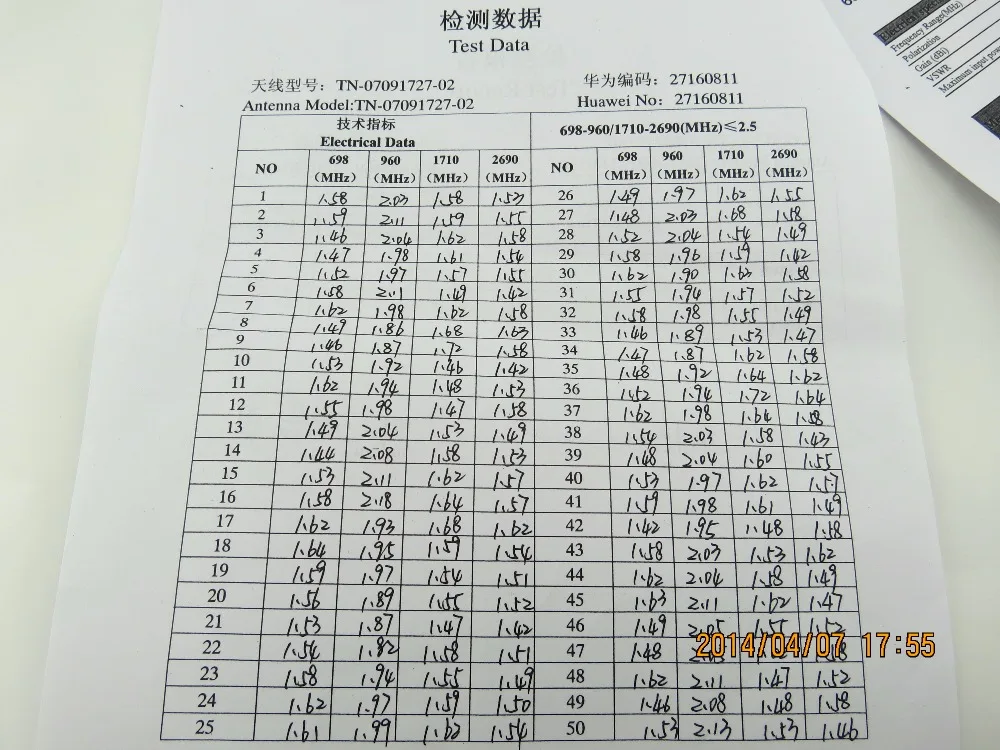 检测数据
Test Data
天线型号: TN-07091727-02 华为编码: 27160811
Antenna Model:TN-07091727-02 Huawei No: 27160811
技术指标 698-960/1710-2690(MHz)≤2.5
Electrical Data
NO 698 (MHz) 960 (MHz) 1710 (MHz) 2690 (MHz) NO 698 (MHz) 960 (MHz) 1710 (MHz) 2690 (MHz)
1 1.58 2.03 1.58 1.53 26 1.49 1.97 1.62 1.55
2 1.59 2.11 1.59 1.55 27 1.48 2.03 1.68 1.58
3 1.46 2.04 1.62 1.58 28 1.52 2.04 1.54 1.49
4 1.47 1.98 1.61 1.54 29 1.58 1.96 1.59 1.42
5 1.52 1.97 1.57 1.55 30 1.62 1.90 1.63 1.58
6 1.58 2.11 1.49 1.42 31 1.55 1.94 1.57 1.52
7 1.62 1.98 1.62 1.58 32 1.58 1.98 1.55 1.49
8 1.49 1.86 1.68 1.63 33 1.46 1.89 1.53 1.47
9 1.46 1.87 1.72 1.58 34 1.47 1.87 1.62 1.58
10 1.53 1.92 1.46 1.42 35 1.48 1.92 1.64 1.62
11 1.62 1.94 1.48 1.53 36 1.52 1.94 1.72 1.64
12 1.55 1.98 1.47 1.58 37 1.62 1.98 1.64 1.58
13 1.49 2.04 1.53 1.49 38 1.54 2.03 1.58 1.43
14 1.44 2.08 1.58 1.53 39 1.48 2.04 1.60 1.55
15 1.53 2.11 1.62 1.57 40 1.53 1.97 1.62 1.57
16 1.58 2.18 1.64 1.57 41 1.59 1.98 1.61 1.49
17 1.62 1.93 1.68 1.62 42 1.42 1.95 1.48 1.58
18 1.64 1.95 1.59 1.54 43 1.58 2.03 1.53 1.62
19 1.59 1.97 1.54 1.51 44 1.62 2.04 1.58 1.49
20 1.56 1.89 1.55 1.52 45 1.63 2.11 1.62 1.47
21 1.53 1.87 1.47 1.42 46 1.49 2.05 1.55 1.52
22 1.54 1.82 1.58 1.51 47 1.48
23 1.58 1.94 1.55 1.49 48 1.62 2.11 1.47 1.52
24 1.62 1.97 1.59 1.50 49 1.46 2.08 1.48 1.58
25 1.61 1.99 1.62 1.54 50 1.53 2.13 1.53 1.46
2014/04/07 17:55
Electrical
Frequency Range(MHz)
Polarization
Gain (dBi)
VSWR
Maximum input